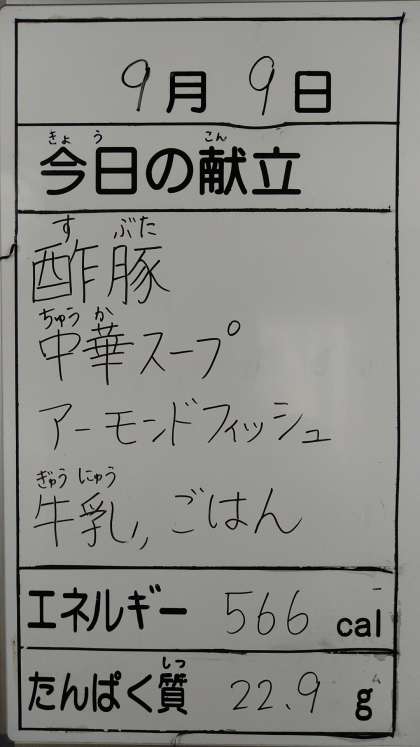 9月9日
きょう こん
今日の献立
す ぶた
酢豚
ちゅう か
中華スープ
アーモンドフィッシュ
ぎゅうにゅう
牛乳,ごはん
エネルギー 566 cal
しつ
たんぱく質 22.9 g